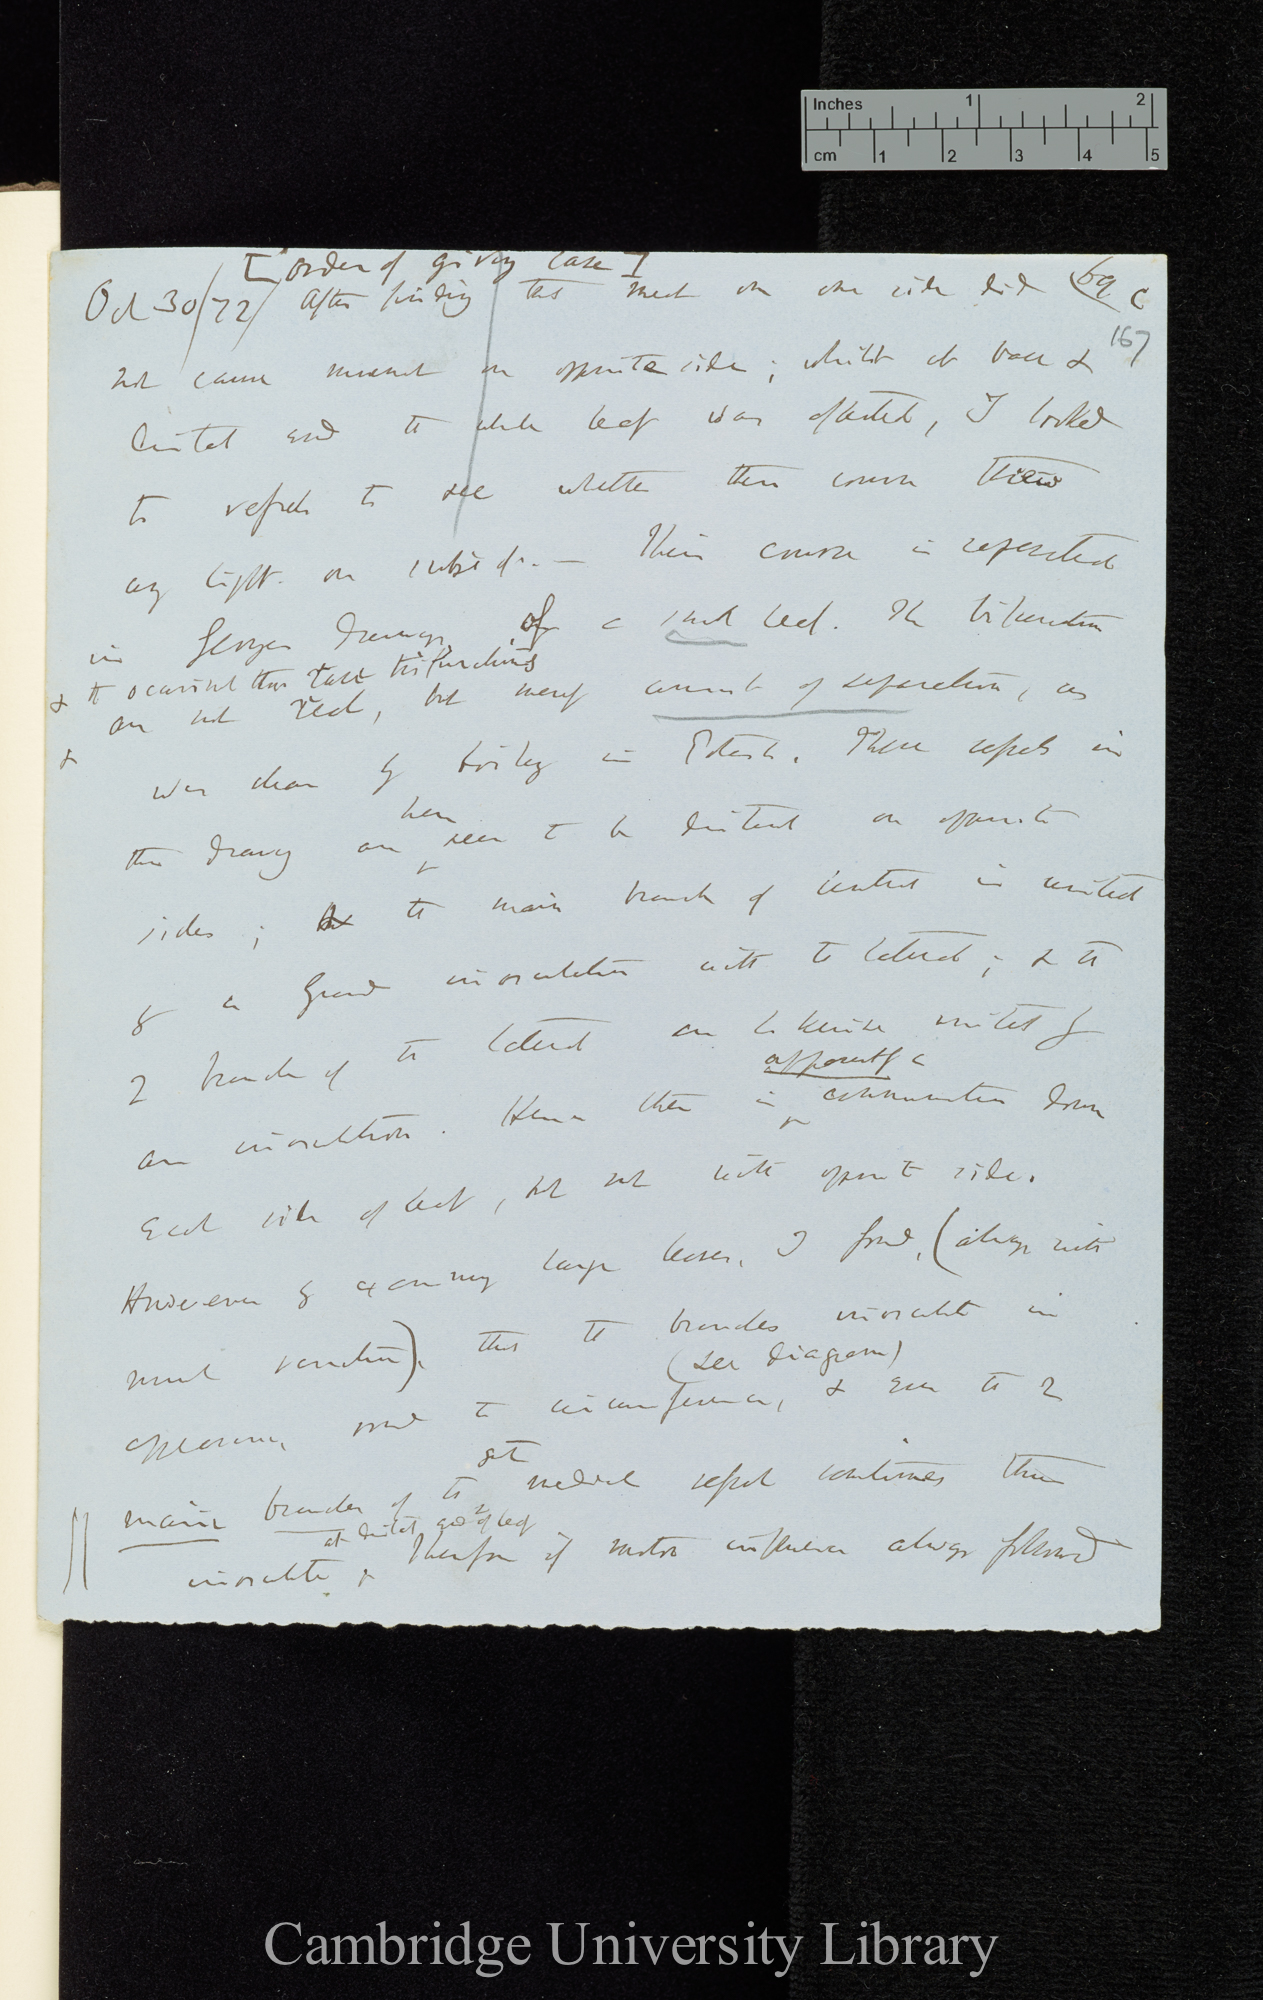 Inches 1 2
cm 1 2 3 4 5
[order of giving case]
69 c
Oct 30/72/ After finding that meat on one side did
167
not cause movement on opposite side; whilst at base &
distal end the whole leaf was affected, I looked
to vessels to see whether their course threw
any light on subject. — Their course is represented
in George's drawings of a small leaf. The bifurcation
& the occasional trifurcations
are not real, but merely amount of separation, as
was shown by boiling in Potash. These vessels in
the drawing are here seen to be distinct on opposite
sides; the main branch of central is united
by a grand inosculation with the lateral; & the
2 branches of the lateral are likewise united by
an inosculation. Hence there is apparently a communication down
each side of leaf, but not with opposite side.
However by examining large leaves, I found, (always with
much variation), that the branches inosculate in
(see diagram)
appearance, round the circumference, & even the 2
main branches of the great medial vessel sometimes thus
at distal end of leaf
inosculate. Therefore if motor influence always followed
Cambridge University Library